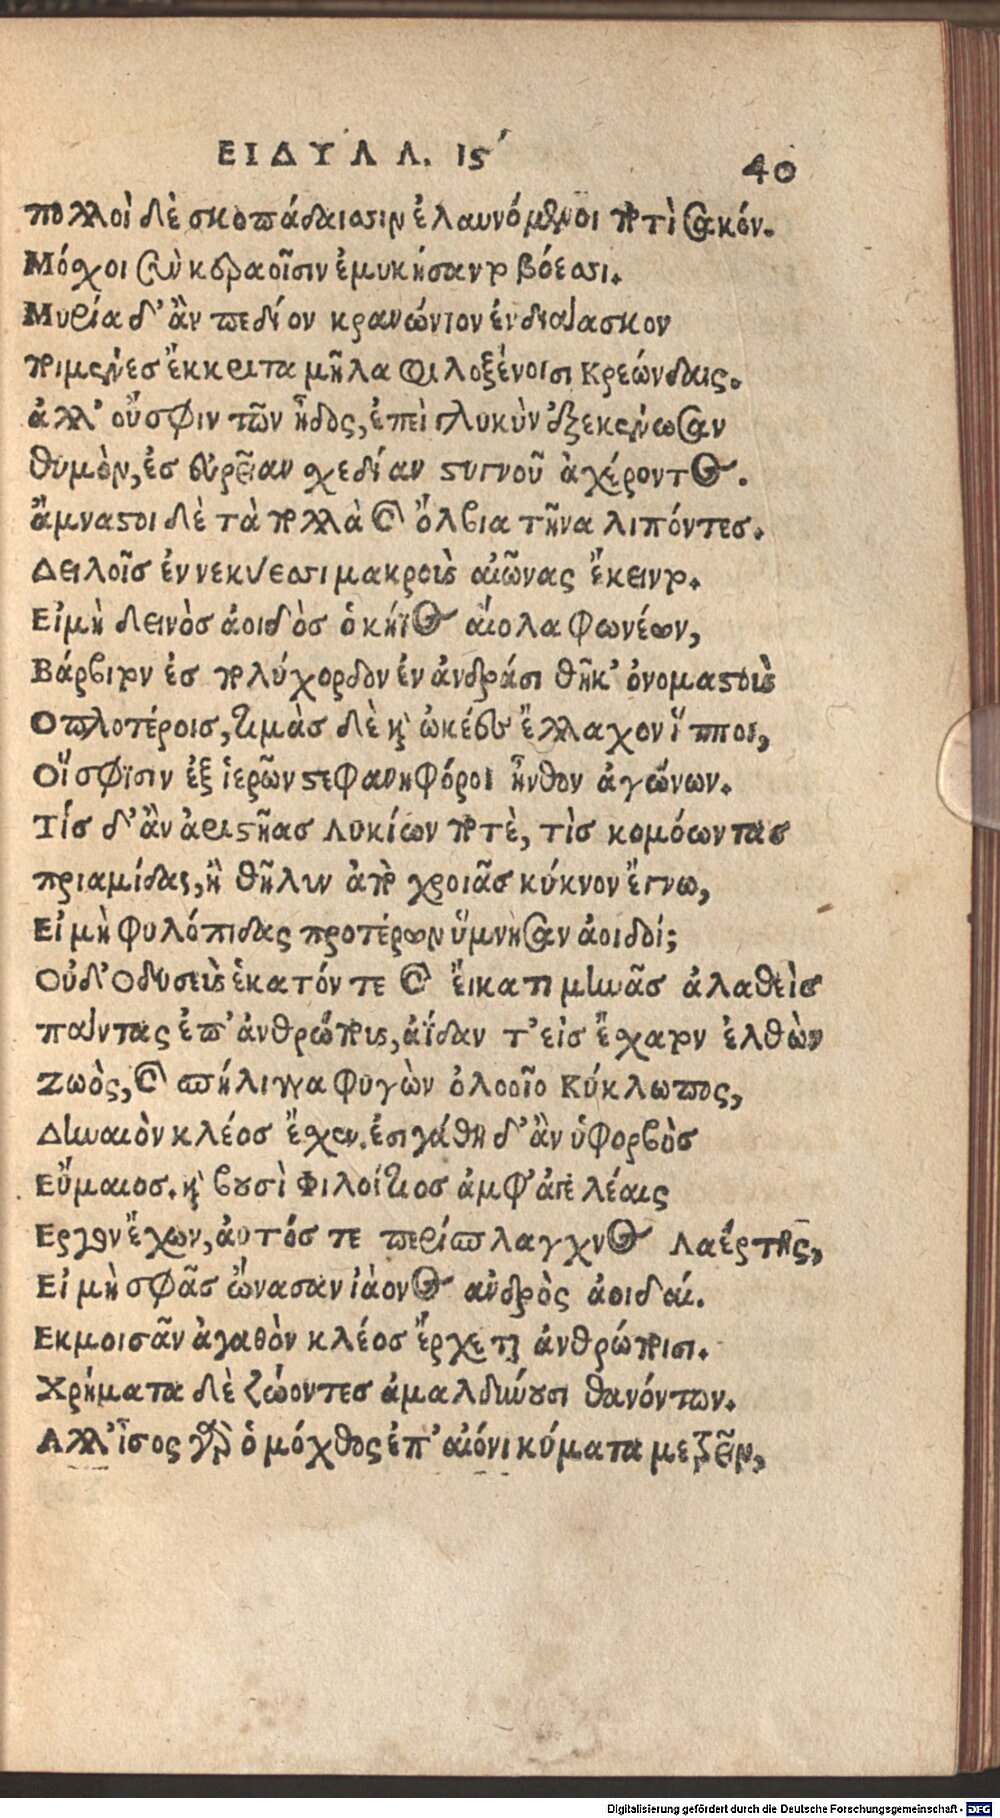 ΕΙΔΥΛΛ. Ις΄
40
πολλοὶ δὲ σκοπάδαισιν ἐλαυνόμενοι ποτὶ σακόν.
Μόσχοι σὺν κεραοῖσιν ἐμυκήσαντο βόεσσι.
Μυρία δ' ἂν πεδίον κρανώνιον ἐνδιάασκον
ποιμένες ἔκκριτα μῆλα φιλοξένοισι Κρεώνδαις.
ἀλλ' οὔσφιν τῶν ἦδος, ἐπεὶ γλυκὺν ἐξεκένωσαν
θυμὸν, ἐς εὐρεῖαν σχεδίαν στυγνοῦ ἀχέροντος.
ἄμναστοι δὲ τὰ πολλὰ καὶ ὄλβια τῆνα λιπόντες.
Δειλοῖς ἐν νεκύεσσι μακροὺς αἰῶνας ἔκειντο.
Εἰ μὴ δεινὸς ἀοιδὸς ὁ κήϊος αἰόλα φωνέων,
Βάρβιτον ἐς πολύχορδον ἐν ἀνδράσι θῆκ' ὀνομαστοὺς
Οπλοτέροις, τιμὰς δὲ καὶ ὠκέες ἔλλαχον ἵπποι,
Οἵ σφισιν ἐξ ἱερῶν στεφανηφόροι ἦνθον ἀγώνων.
Τίς δ' ἂν ἀριστῆας λυκίων ποτὲ, τὶς κομόωντας
πριαμίδας, ἢ θῆλυν ἀπὸ χροιᾶς κύκνον ἔγνω,
Εἰ μὴ φυλόπιδας προτέρων ὕμνησαν ἀοιδοί;
Οὐδ' Οδυσεὺς ἑκατόν τε καὶ εἴκατι μῆνας ἀλαθεὶς
πάντας ἐπ' ἀνθρώπους, ἀΐδαν τ' εἰς ἔχατον ἐλθὼν
Ζωὸς, καὶ σπήλιγγα φυγὼν ὀλοοῖο Κύκλωπος,
Δηναιὸν κλέος ἔχεν. ἐσιγάθη δ' ἂν ὑφορβὸς
Εὔμαιος. καὶ βουσὶ Φιλοίτιος ἀμφ' ἀγελέαις
Εργον ἔχων, αὐτός τε περίσπλαγχνος Λαέρτης,
Εἰ μὴ σφᾶς ὤνασαν ἰάονος ἀνδρὸς ἀοιδαί.
Εκ μοισᾶν ἀγαθὸν κλέος ἔρχεται ἀνθρώποισι.
Χρήματα δὲ ζώοντες ἀμαλδύνουσι θανόντων.
Αλλ' ἶσος γὰρ ὁ μόχθος ἐπ' αἰόνι κύματα μετρεῖν,
Digitalisierung gefördert durch die Deutsche Forschungsgemeinschaft - DFG